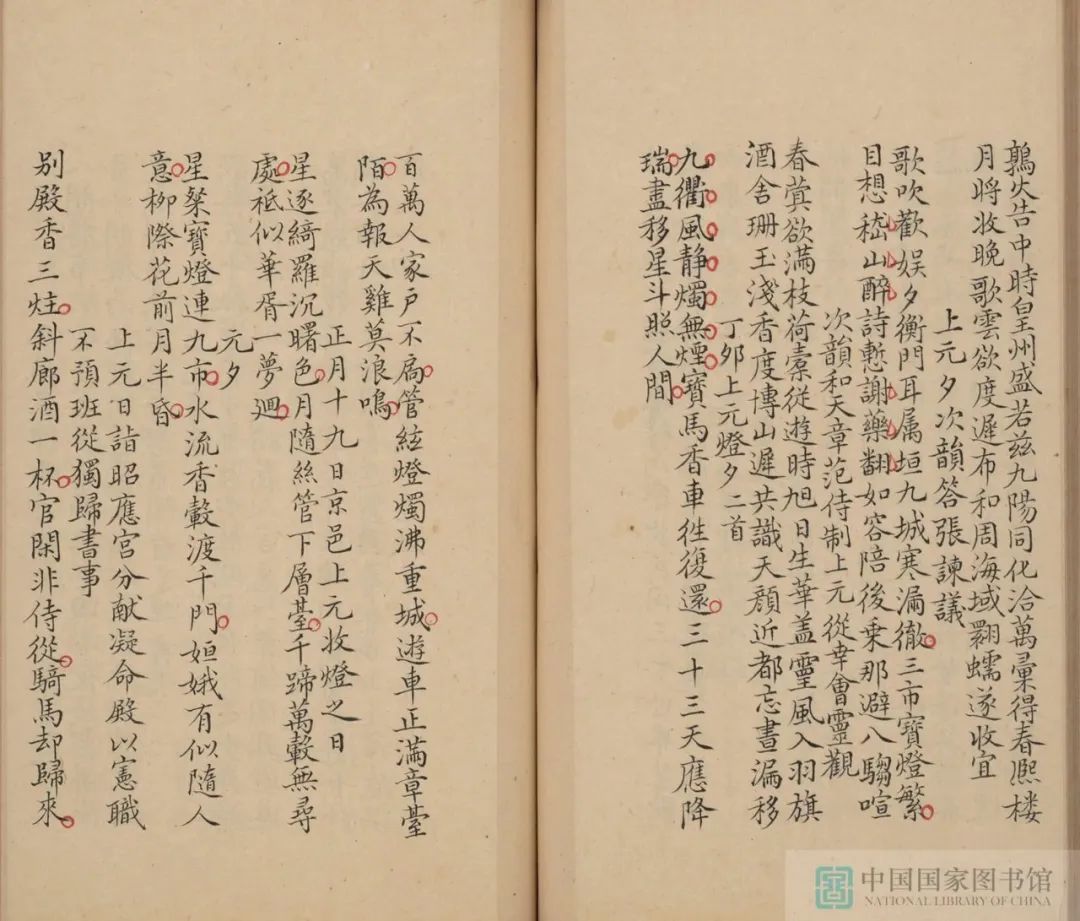 鶉火告中時皇州盛若兹九陽同化洽萬彙得春熙楼
月將收晩歌雲欲度遲布和周海域翾蠕遂收宜
上元夕次韻答張諫議
歌吹歡娱夕衡門耳属垣九城寒漏徹三市寶燈繁
目想嵇山醉詩慙謝藥翻如容陪後乗那避八騶喧
次韻和天章范侍制上元從幸會靈觀
春蓂欲滿枝荷橐從遊時旭日生華盖靈風入羽旗
酒舍珊玉淺香度博山遲共識天顔近都忘晝漏移
丁夘上元燈夕二首
九衢風静燭無煙寶馬香車往復還三十三天應降
瑞盡移星斗照人間
百萬人家戸不扃管絃燈燭沸重城遊車正滿章臺
陌為報天雞莫浪鳴
正月十九日京邑上元收燈之日
星逐綺羅沉曙色月隨絲管下層臺千蹄萬轂無尋
處祗似華胥一夢廻
元夕
星粲寶燈連九市水流香轂渡千門姮娥有似隨人
意栁際花前月半昏
上元日詣昭應宫分献凝命殿以憲職
不預班從獨歸書事
别殿香三炷斜廊酒一杯官閑非侍從騎馬却歸來
中国国家图书馆
NATIONAL LIBRARY OF CHINA